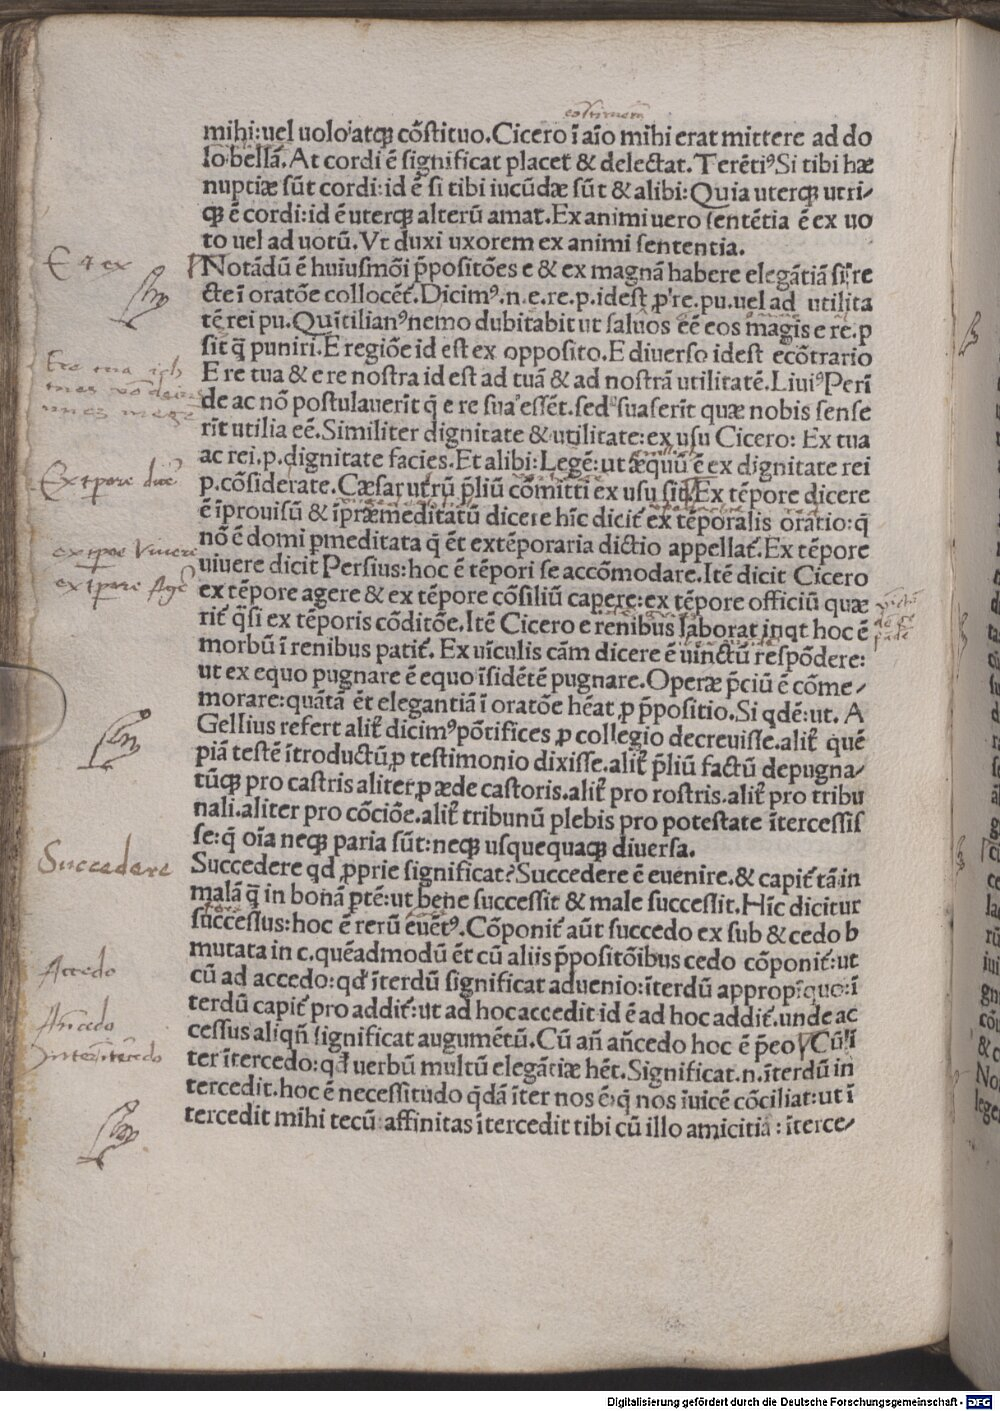 mihi:uel uolo atqꝫ cōstituo.Cicero ī aīo mihi erat mittere ad do
lo bellā.At cordi ē significat placet & delectat.Terētiꝰ Si tibi hæ
nuptiæ sūt cordi:id ē si tibi iucūdæ sūt & alibi:Quia uterqꝫ utri⸗
qꝫ ē cordi:id ē uterqꝫ alterū amat.Ex animi uero sentētia ē ex uo
to uel ad uotū.Vt duxi uxorem ex animi sententia.
E & ex
Notādū ē huiusmōi p̄positōes e & ex magnā habere elegātiā si re
cte ī oratōe collocēt̃.Dicimꝰ.n.e.re.p.idest ꝓ re.pu.uel ad utilita
tē rei pu.Quītilianꝰ nemo dubitabit ut saluos eē eos magis e re.p
sit q̄ puniri.E regiōe id est ex opposito.E diuerso idest ecōtrario
E re tua & e re nostra id est ad tuā & ad nostrā utilitatē.Liuiꝰ Perī
de ac nō postulauerīt q̄ e re sua essēt.sed suaserīt quæ nobis sense
rīt utilia eē.Similiter dignitate & utilitate:ex usu Cicero: Ex tua
ac rei.p.dignitate facies.Et alibi:Legē:ut æquiū ē ex dignitate rei
Ex tꝑore dicē
p.cōsiderate.Cæsar utrū p̄liū cōmitti ex usu sit.Ex tēpore dicere
ē īprouisū & īpræmeditatū dicere hīc dicit̃ ex tēporalis oratio:q̄
nō ē domi p̄meditata q̄ ēt extēporaria dictio appellat̃.Ex tēpore
uiuere dicit Persius:hoc ē tēpori se accōmodare.Itē dicit Cicero
ex tēpore agere & ex tēpore cōsiliū capere:ex tēpore officiū quæ
rit̃ q̄si ex tēporis cōditōe.Itē Cicero e renibus laborat inqt hoc ē
morbū ī renibus patit̃. Ex uīculis cām dicere ē uinctū respōdere:
ut ex equo pugnare ē equo īsidētē pugnare.Operæ p̄ciū ē cōme⸗
morare:quātā ēt elegantiā ī oratōe hēat ꝓ p̄positio.Si qdē:ut. A
Gellius refert alit̃ dicimꝰ pōtifices ꝓ collegio decreuisse.alit̃ quē
piā testē ītroductū ꝓ testimonio dixisse.alit̃ p̄liū factū depugna⸗
tūqꝫ pro castris aliter ꝓ æde castoris.alit̃ pro rostris.alit̃ pro tribu
nali.aliter pro cōciōe.alit̃ tribunū plebis pro potestate ītercessis
se:q̄ oīa neqꝫ paria sūt:neqꝫ usquequaqꝫ diuersa.
Succedere
Succedere qd ꝓprie significat?Succedere ē euenire.& capit̃ tā in
malā q̄ in bonā ꝑtē:ut bene successit & male successit.Hīc dicitur
successus:hoc ē rerū euētꝰ.Cōponit̃ aūt succedo ex sub & cedo b
mutata in c.quēadmodū ēt cū aliis p̄positōibus cedo cōponit̃:ut
Accedo
cū ad accedo:qd īterdū significat aduenio:īterdū appropīquo:ī
terdū capit̃ pro addit̃:ut ad hoc accedit id ē ad hoc addit̃.unde ac
cessus aliqñ significat augumētū.Cū añ añcedo hoc ē p̄eo Cū ī
ter ītercedo:qd uerbū multū elegātiæ hēt.Significat.n.īterdū in
tercedit.hoc ē necessitudo q̄dā īter nos ē:q̄ nos īuicē cōciliat:ut ī
tercedit mihi tecū affinitas ītercedit tibi cū illo amicitia : īterce⸗
Digitalisierung gefördert durch die Deutsche Forschungsgemeinschaft - DFG